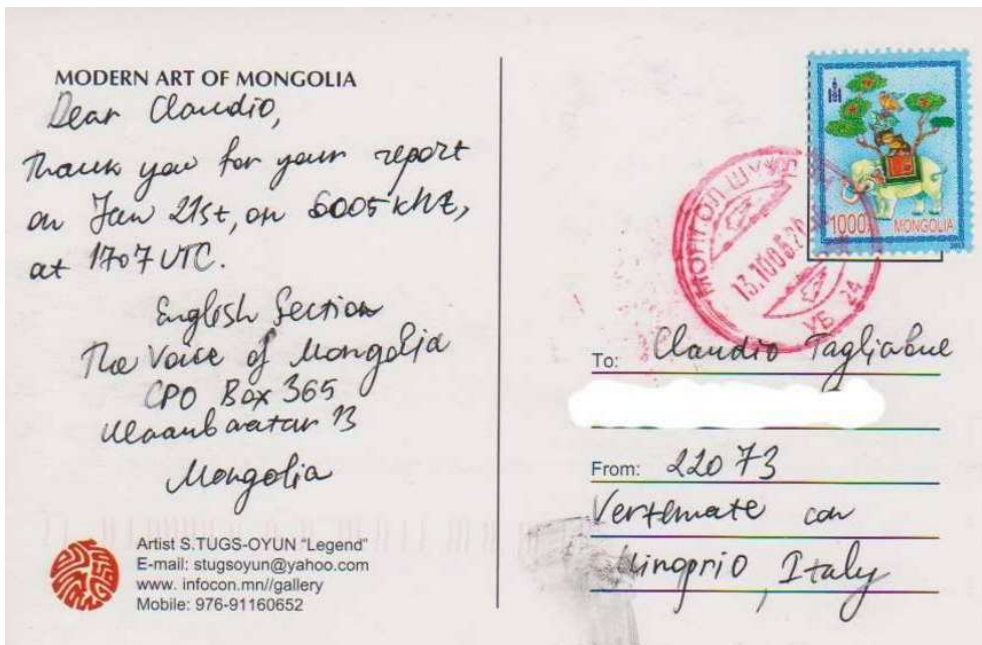 MODERN ART OF MONGOLIA
Dear Claudio,
Thank you for your report
on Jan 21st, on 6005 kHz,
at 1707 UTC.
English Section
The Voice of Mongolia
CPO Box 365
Ulaanbaatar 13
Mongolia
Artist S.TUGS-OYUN "Legend"
E-mail: stugsoyun@yahoo.com
www. infocon.mn//gallery
Mobile: 976-91160652
1000₮ MONGOLIA
МОНГОЛ ШУУДАН
УБ 24
To: Claudio Tagliabue
From: 22073
Vertemate con
Minoprio, Italy